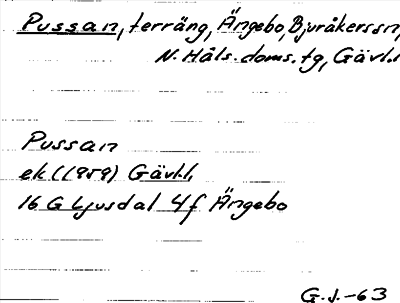 Pussan, terräng, Ängebo, Bjuråkerssn,
N. Häls. doms. tg, Gävl.l
Pussan
ek (1959) Gävl.l.
16 G Ljusdal 4f Ängebo
G.J.-63